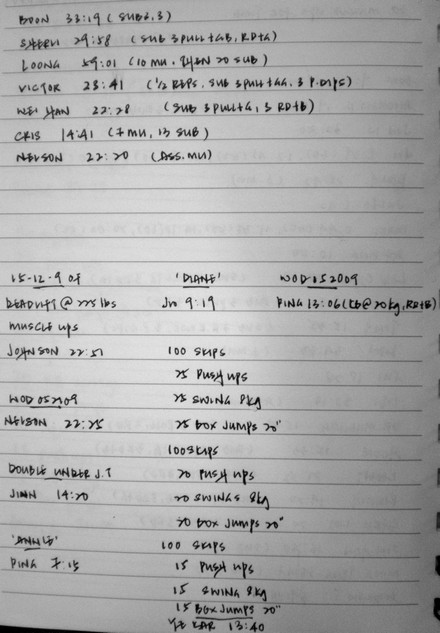 BOON 33:19 (SUB 2,3)
SHERLI 29:58 (SUB 3PULL+GB, RD+G)
LOONG 59:01 (10 MU, THEN 20 SUB)
VICTOR 23:41 (1/2 REPS, SUB 3PULL+GG, 3 P.DIPS)
WEI HAN 22:28 (SUB 3PULL+G, 3 RD+B)
CRIS 14:41 (7 MU, 13 SUB)
NELSON 22:20 (ASS.MU)
15-12-9 OF 'DIANE' WOD 152009
DEADLIFT @ 225 lbs Jn 9:19 PING 13:06 (KB@20kg, RD+B)
MUSCLE UPS
JOHNSON 22:51 100 SKIPS
25 PUSH UPS
WOD 052909 25 SWING 8kg
NELSON 22:25 25 BOX JUMPS 20"
100 SKIPS
DOUBLE UNDER J.T 20 PUSH UPS
JINN 14:20 20 SWINGS 8kg
20 BOX JUMPS 20"
'ANNIE' 100 SKIPS
PING 7:15 15 PUSH UPS
15 SWING 8kg
15 BOX JUMPS 20"
13:40